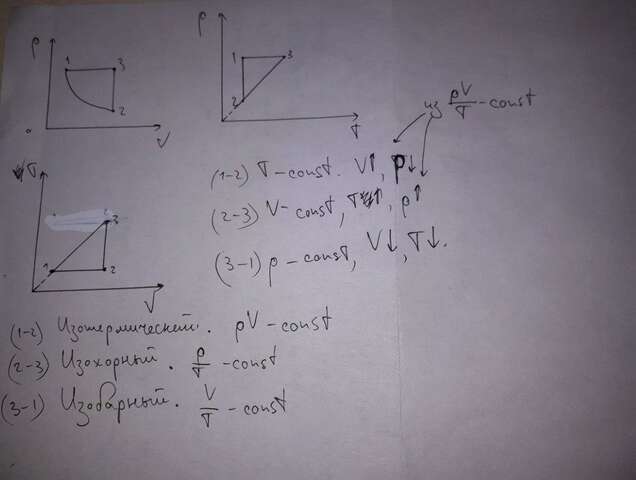 p
1 3
2
0 V
p
1 3
2
T
из pV/T - const
T
3
1 2
V
(1-2) T - const. V↑, p↓
(2-3) V - const, T↑, p↑
(3-1) p - const, V↓, T↓.
(1-2) Изотермический. pV - const
(2-3) Изохорный. p/T - const
(3-1) Изобарный. V/T - const